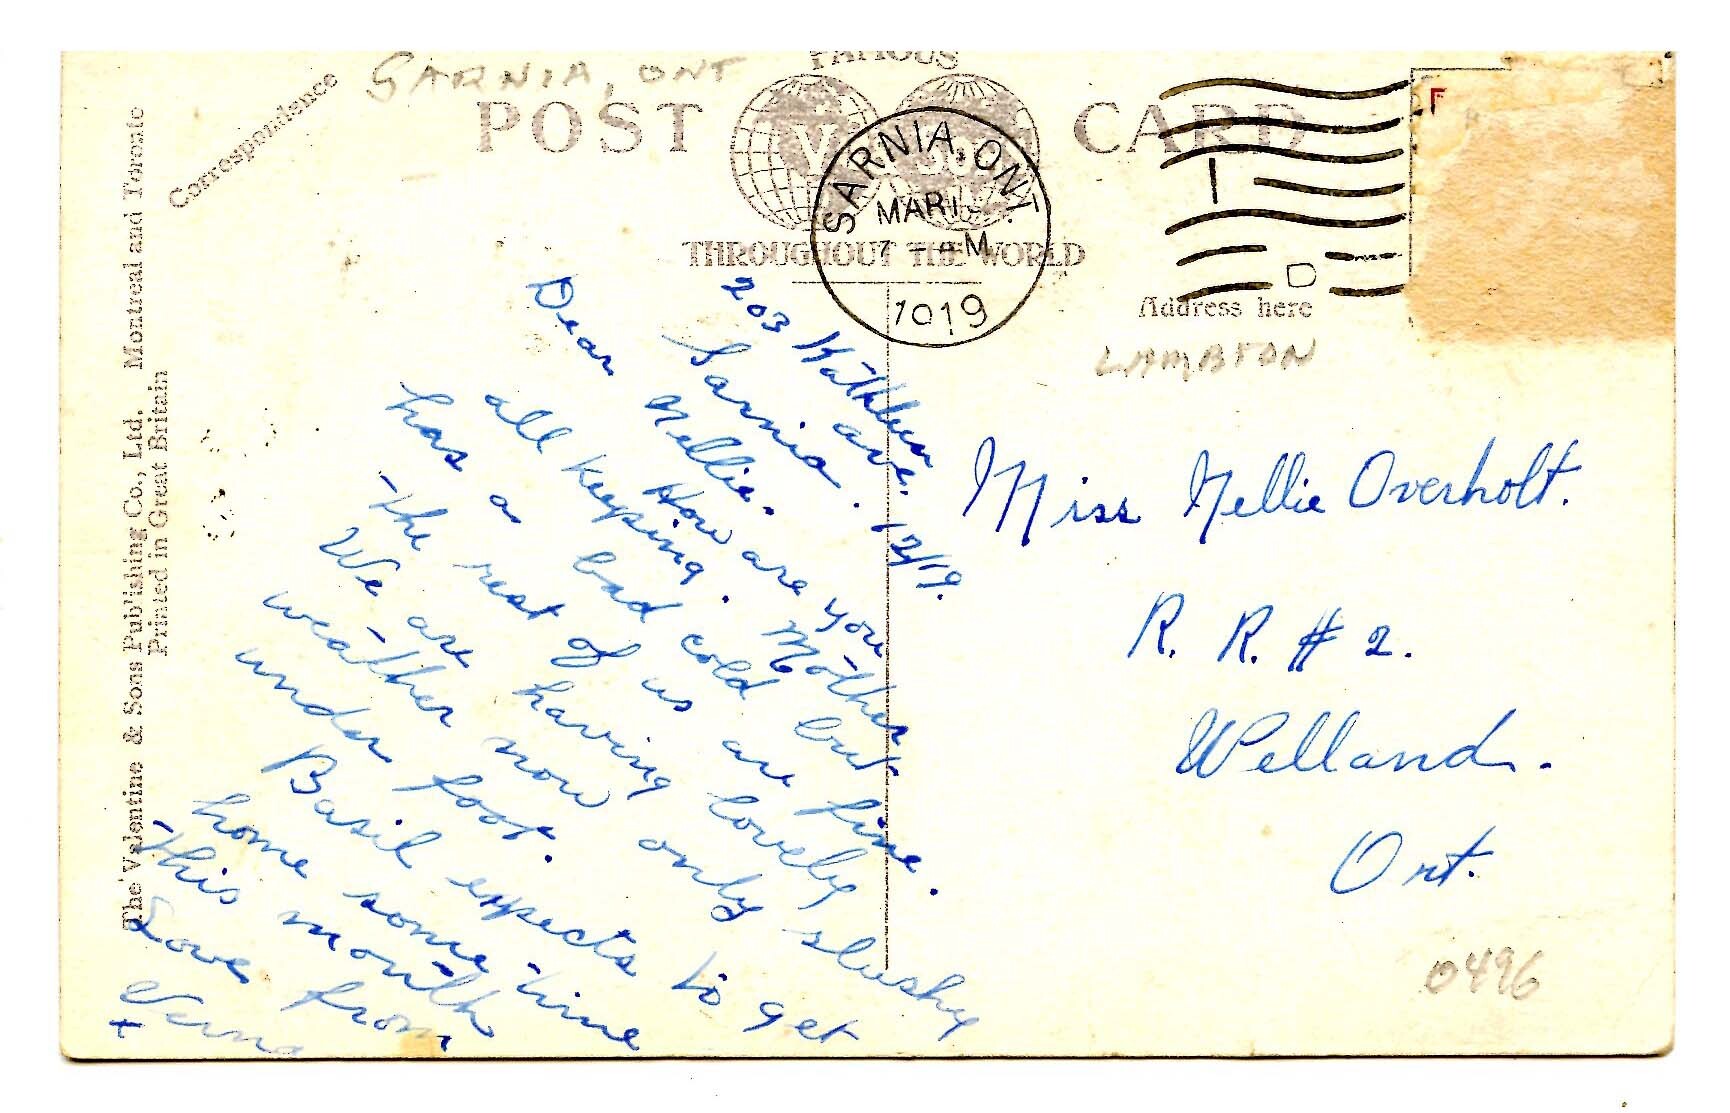 SARNIA, ONT
FAMOUS
POST CARD
THROUGHOUT THE WORLD
Correspondence
Address here
SARNIA, ONT.
MAR 1
7 - AM
1919
D
F
LAMBTON
The Valentine & Sons Publishing Co., Ltd. Montreal and Toronto
Printed in Great Britain
203 Kathleen ave.
Sarnia. 12/19.
Dear Nellie.
How are you
all keeping. Mother
has a bad cold but
the rest of us are fine.
We are having lovely
weather now only slushy
under foot.
Basil expects to get
home some time
this month
Love from
Verna
Miss Nellie Overholt.
R. R. # 2.
Welland.
Ont.
0496